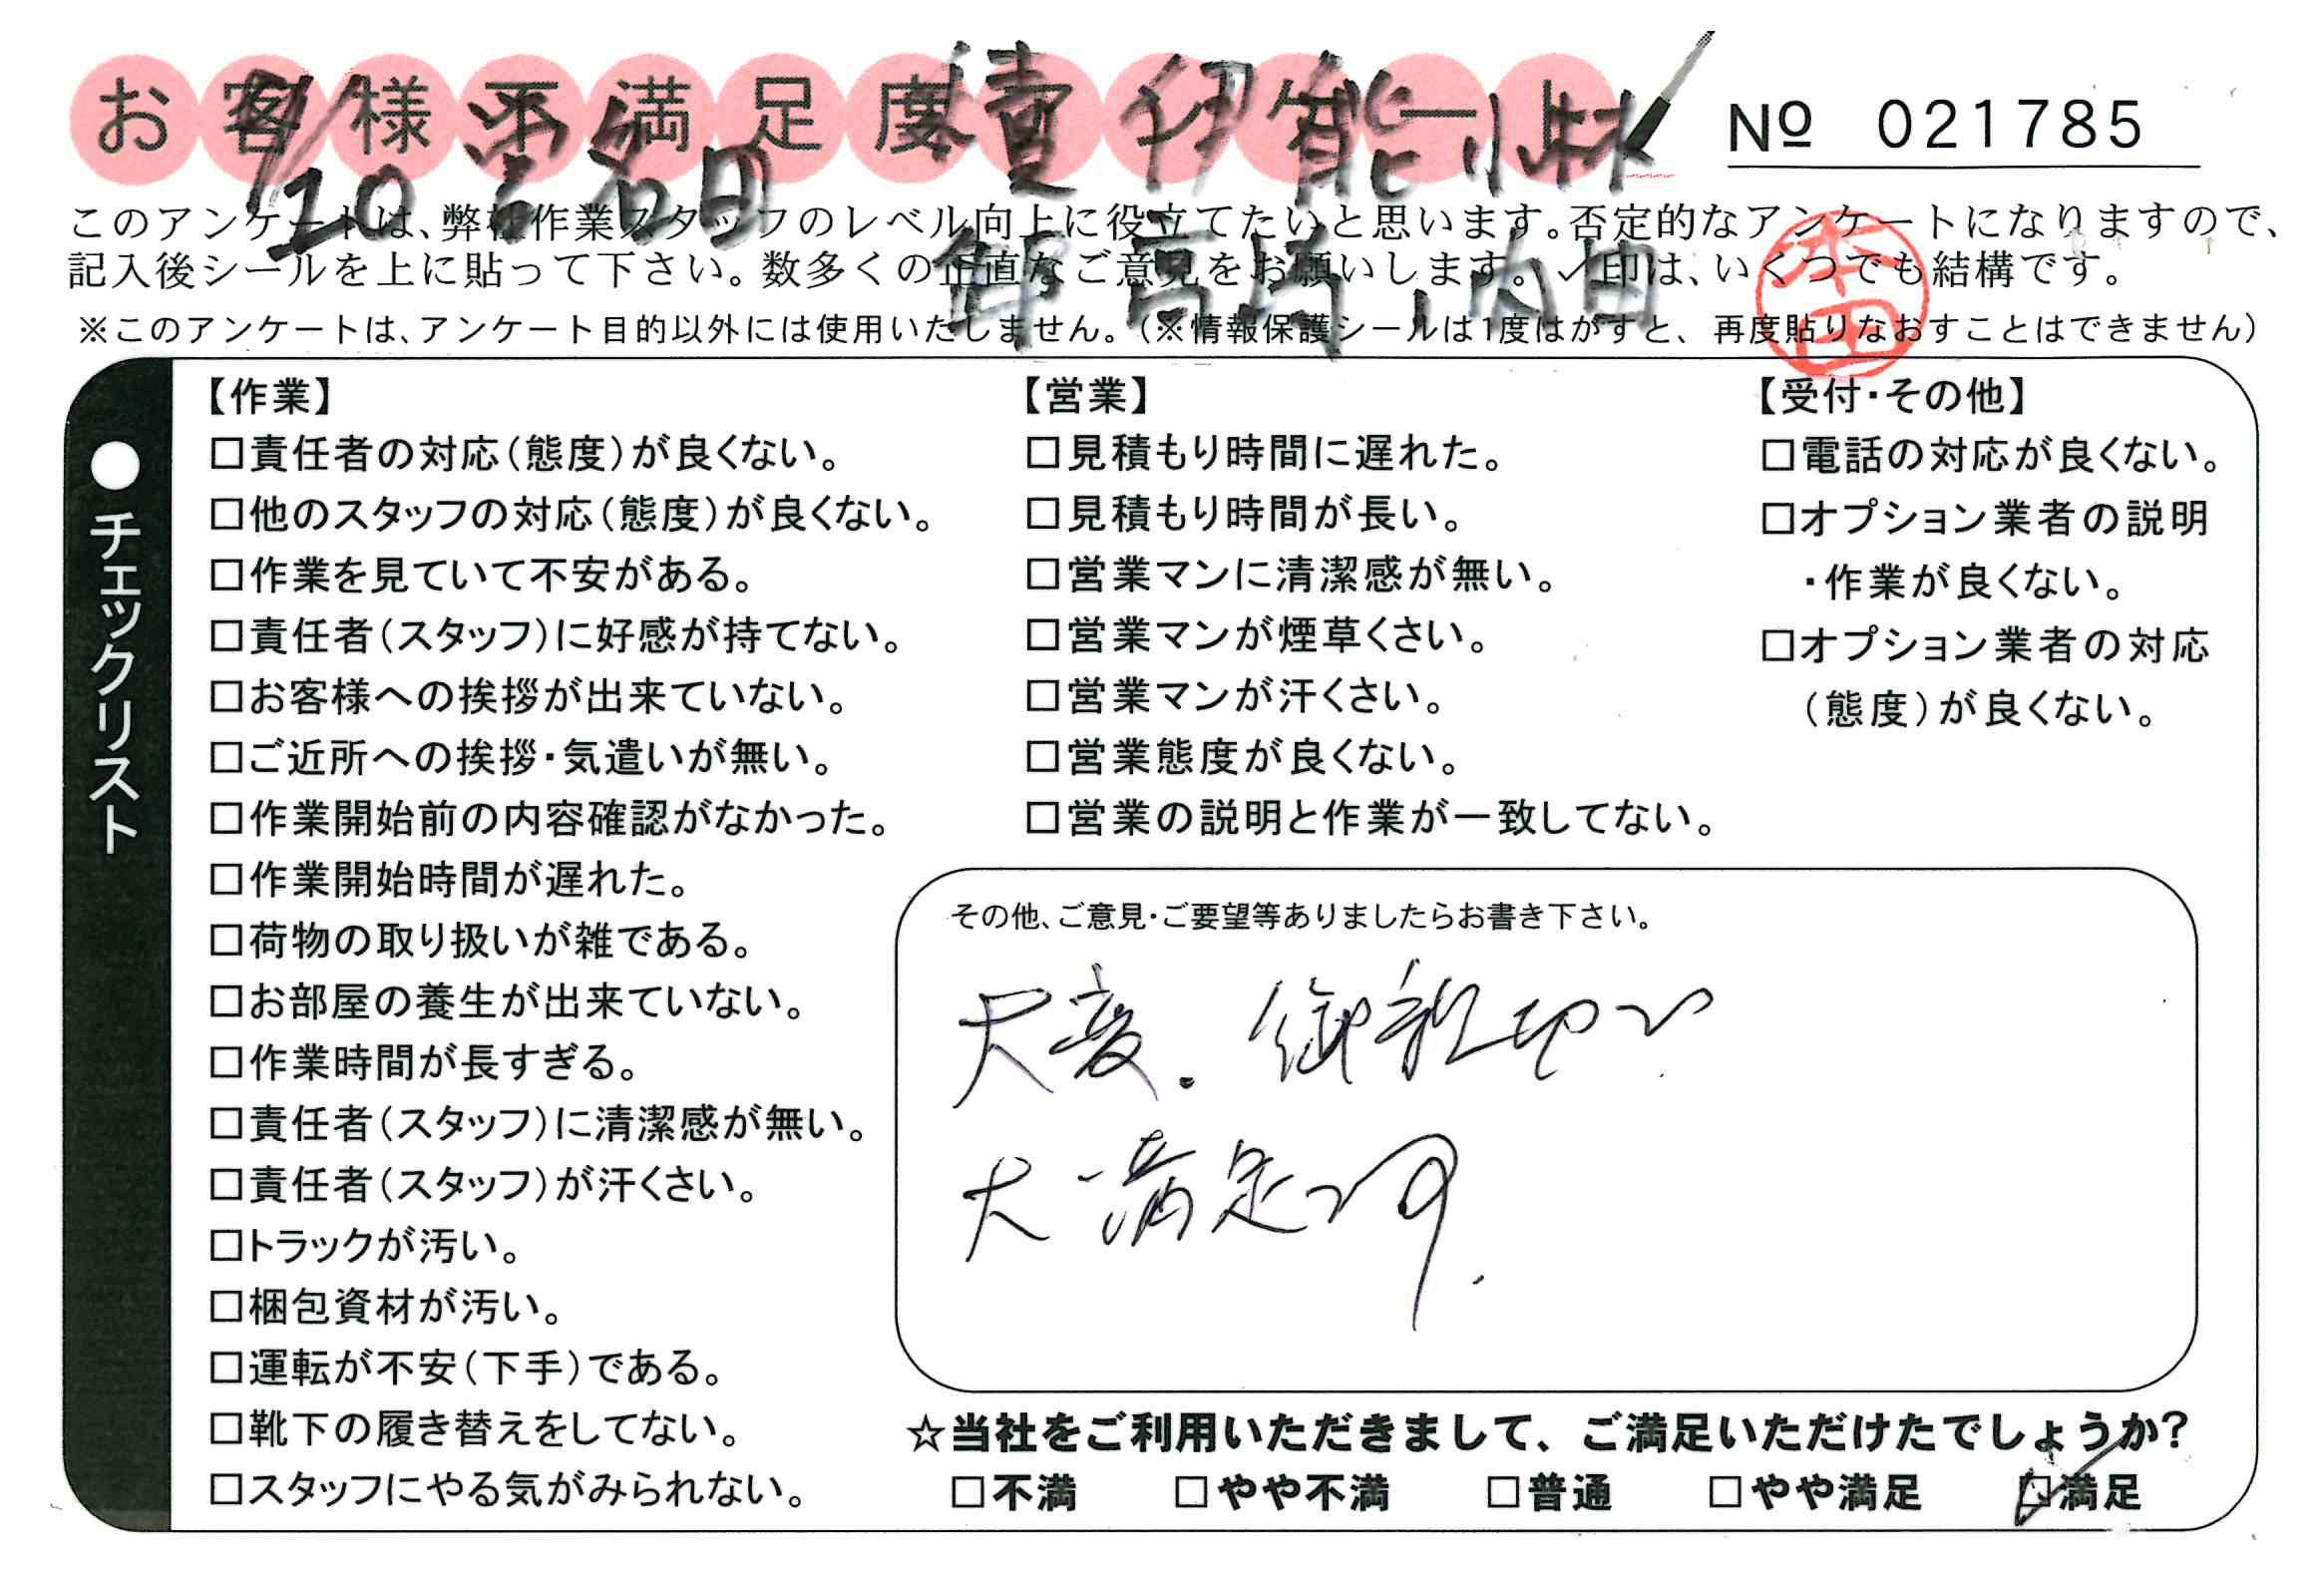 お客様不満足度アンケート
No 021785
責 伊能 小林
4/10 吉名田
高嶋,内田
本田
このアンケートは、弊社作業スタッフのレベル向上に役立てたいと思います。否定的なアンケートになりますので、
記入後シールを上に貼って下さい。数多くの正直なご意見をお願いします。✓印は、いくつでも結構です。
※このアンケートは、アンケート目的以外には使用いたしません。(※情報保護シールは1度はがすと、再度貼りなおすことはできません)
●チェックリスト
【作業】
□責任者の対応(態度)が良くない。
□他のスタッフの対応(態度)が良くない。
□作業を見ていて不安がある。
□責任者(スタッフ)に好感が持てない。
□お客様への挨拶が出来ていない。
□ご近所への挨拶・気遣いが無い。
□作業開始前の内容確認がなかった。
□作業開始時間が遅れた。
□荷物の取り扱いが雑である。
□お部屋の養生が出来ていない。
□作業時間が長すぎる。
□責任者(スタッフ)に清潔感が無い。
□責任者(スタッフ)が汗くさい。
□トラックが汚い。
□梱包資材が汚い。
□運転が不安(下手)である。
□靴下の履き替えをしてない。
□スタッフにやる気がみられない。
【営業】
□見積もり時間に遅れた。
□見積もり時間が長い。
□営業マンに清潔感が無い。
□営業マンが煙草くさい。
□営業マンが汗くさい。
□営業態度が良くない。
□営業の説明と作業が一致してない。
【受付・その他】
□電話の対応が良くない。
□オプション業者の説明
・作業が良くない。
□オプション業者の対応
(態度)が良くない。
その他、ご意見・ご要望等ありましたらお書き下さい。
大変.御親切で
大満足です.
☆当社をご利用いただきまして、ご満足いただけたでしょうか?
□不満 □やや不満 □普通 □やや満足 ☑満足